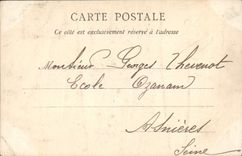 CARTE POSTALE
Ce côté est exclusivement réservé à l'adresse
Monsieur Georges Thevenot
Ecole Ozanam
Asnières
Seine